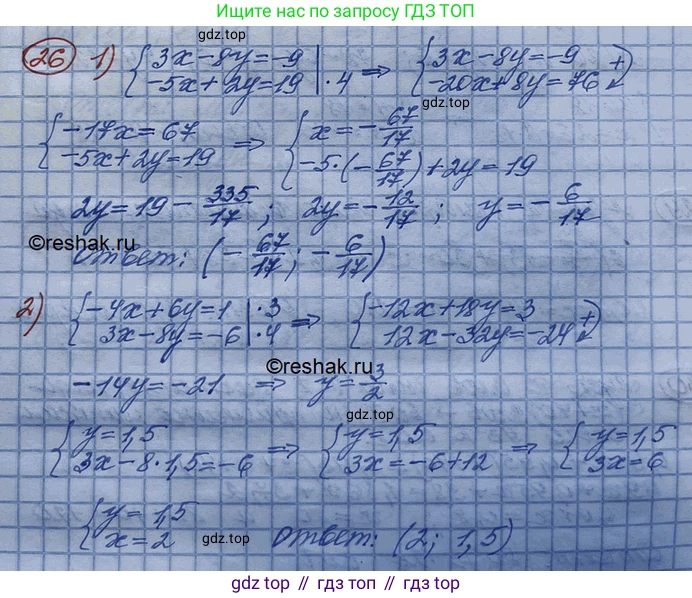 Ищите нас на просторах ГДЗ ТОП
gdz.top
26 1) { 3x-8y=-9 -5x+2y=19 | ·4 ⇒ { 3x-8y=-9 -20x+8y=76 +
gdz.top
{ -17x=67 -5x+2y=19 ⇒ { x=-67/17 -5·(-67/17)+2y=19
2y=19-335/17; 2y=-12/17; y=-6/17
©reshak.ru
ответ: (-67/17; -6/17)
2) { -4x+6y=1 | ·3 3x-8y=-6 | ·4 ⇒ { -12x+18y=3 12x-32y=-24 +
©reshak.ru
-14y=-21 ⇒ y=3/2
gdz.top
{ y=1,5 3x-8·1,5=-6 ⇒ { y=1,5 3x=-6+12 ⇒ { y=1,5 3x=6
{ y=1,5 x=2 ответ: (2; 1,5)
gdz.top
gdz top // гдз топ // gdz.top